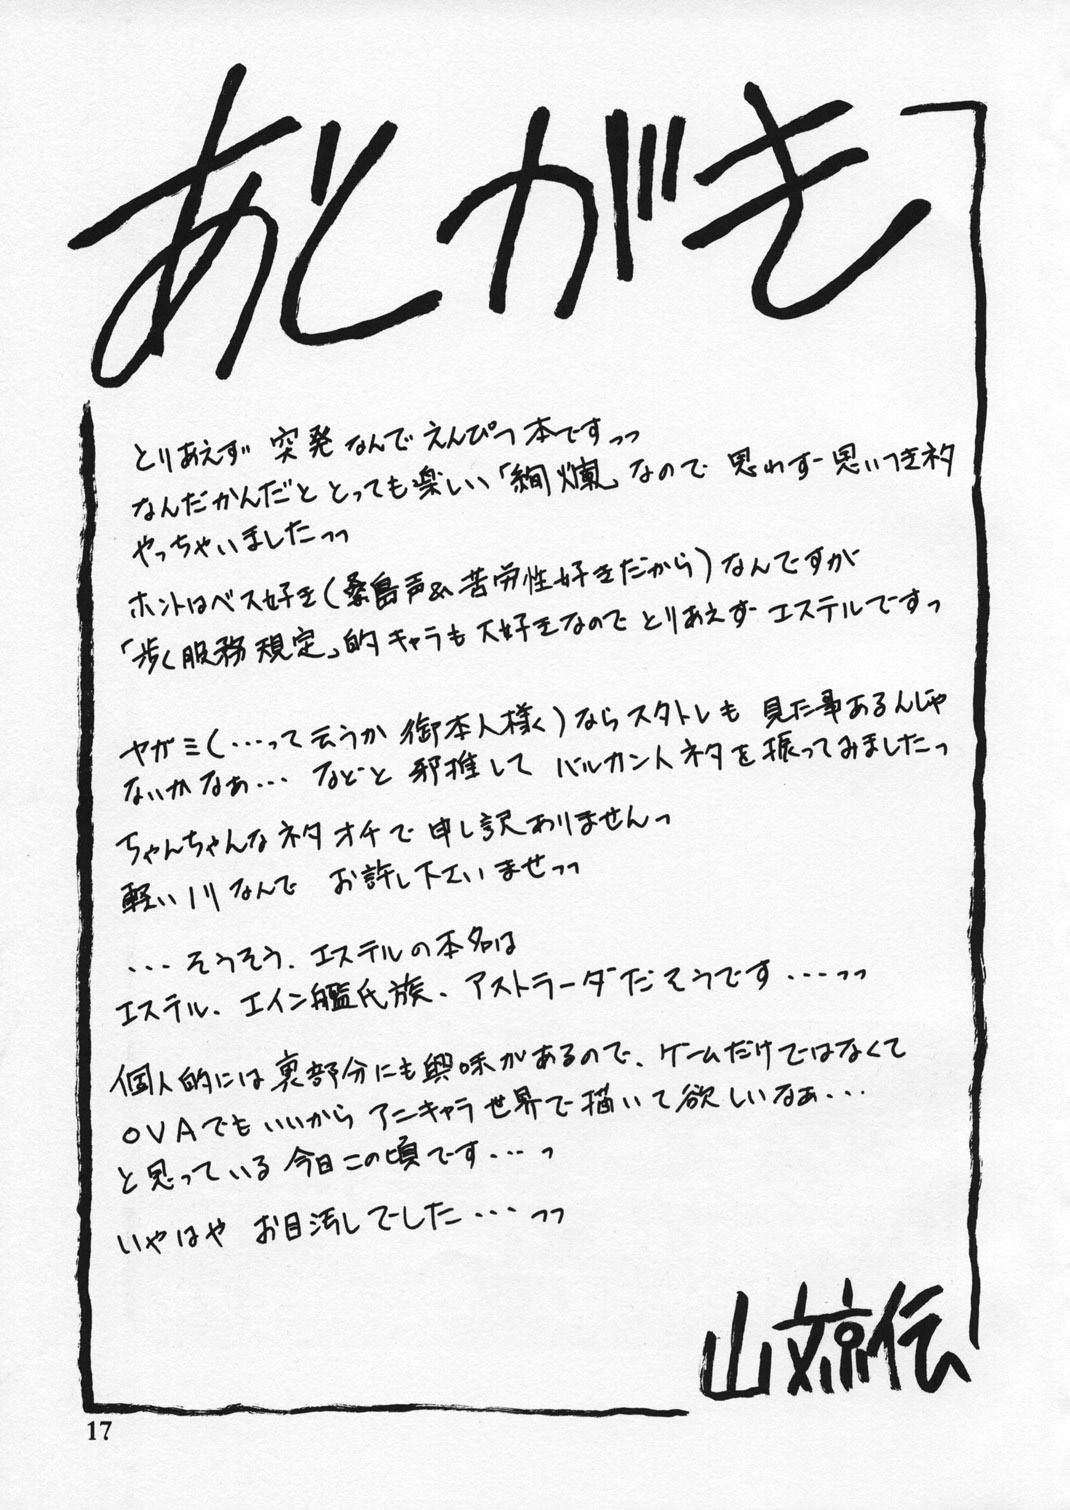 あとがき
とりあえず 突発なんでえんぴつ本ですっっ
なんだかんだととっても楽しい「絢爛」なので 思わず思いつきネタ
やっちゃいましたっっ
ホントはベス好き(桑島声&苦労性好きだから)なんですが
「歩く服務規定」的キャラも大好きなのでとりあえずエステルですっ
ヤガミ(…って云うか御本人様く)ならスタトレも 見た事あるんじゃ
ないかなぁ… などと 邪推して バルカン人ネタを振ってみましたっ
ちゃんちゃんなネタオチで申し訳ありませんっ
軽いノリなんで お許し下さいませっっ
…そうそう、エステルの本名は
エステル、エイン艦氏族、アストラーダだそうです…っっ
個人的には裏部分にも興味があるので、ゲームだけではなくて
OVAでもいいからアニキャラ世界で描いて欲しいなぁ…
と思っている今日この頃です…っ
いやはや お目汚しでした…っっ
山文京伝
17